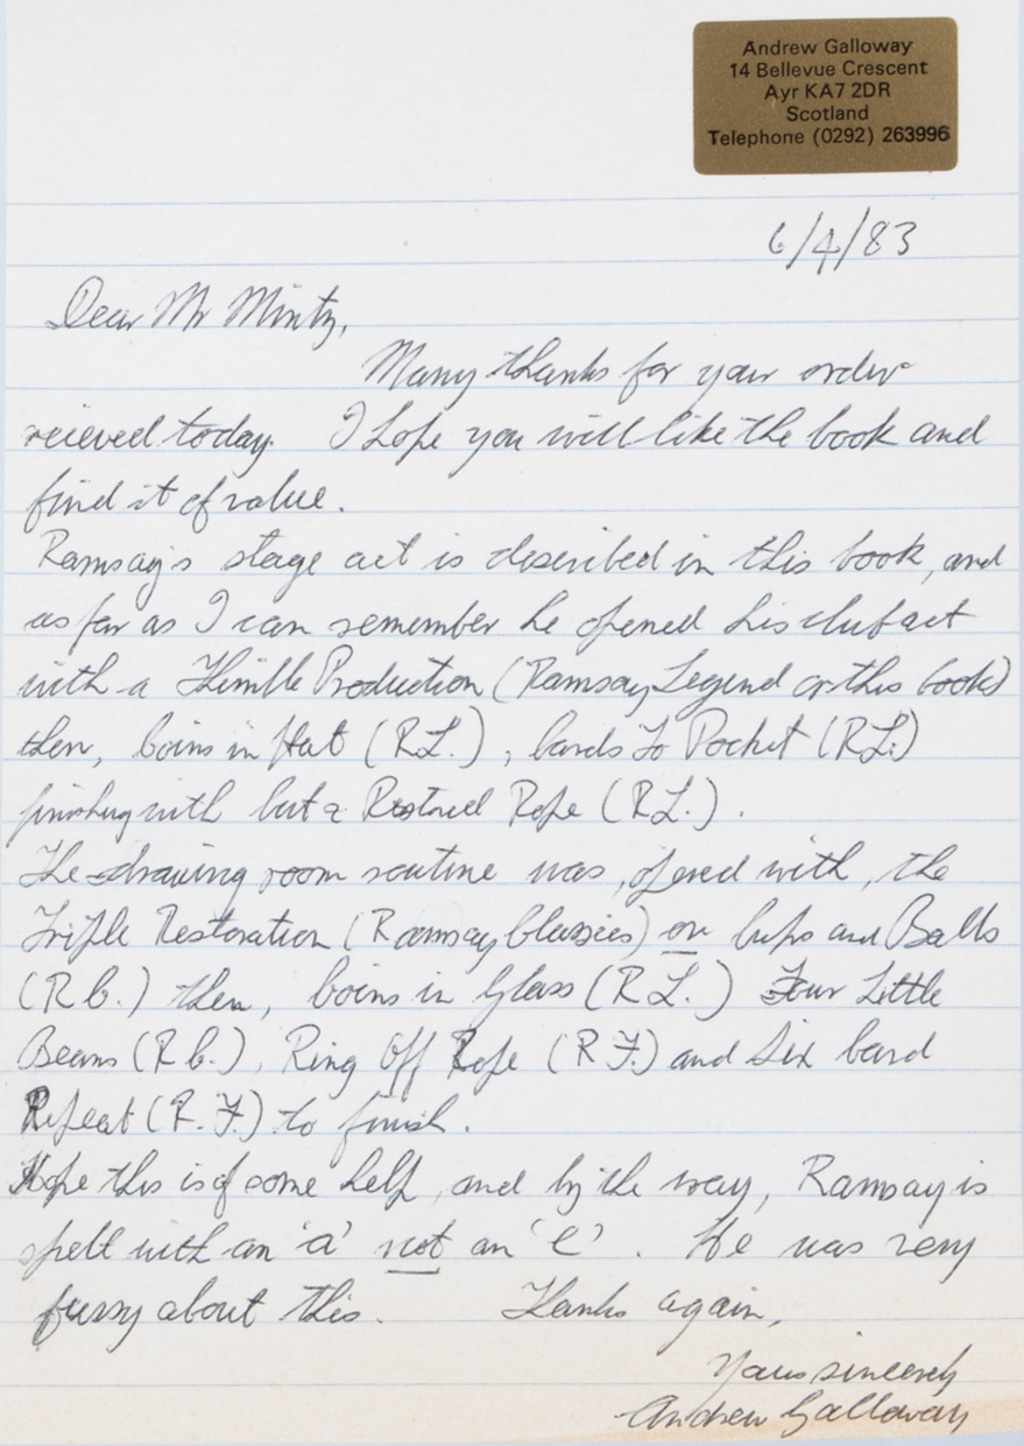 Andrew Galloway
14 Bellevue Crescent
Ayr KA7 2DR
Scotland
Telephone (0292) 263996
6/4/83
Dear Mr Mintz,
Many thanks for your order
recieved today. I hope you will like the book and
find it of value.
Ramsay's stage act is described in this book, and
as far as I can remember he opened his club act
with a Thimble Production (Ramsay Legend or this book)
then, Coins in Hat (R L.), Cards To Pocket (R L.)
finishing with Cut & Restored Rope (R L.).
The drawing room routine was, opened with, the
Triple Restoration (Ramsay Classics) or Cups and Balls
(R C.) then, Coins in Glass (R L.) Four Little
Beans (R C.), Ring Off Rope (R F.) and Six Card
Repeat (R. F.) to finish.
Hope this is of some help, and by the way, Ramsay is
spelt with an 'a' not an 'e'. He was very
fussy about this. Thanks again,
Yours sincerely
Andrew Galloway